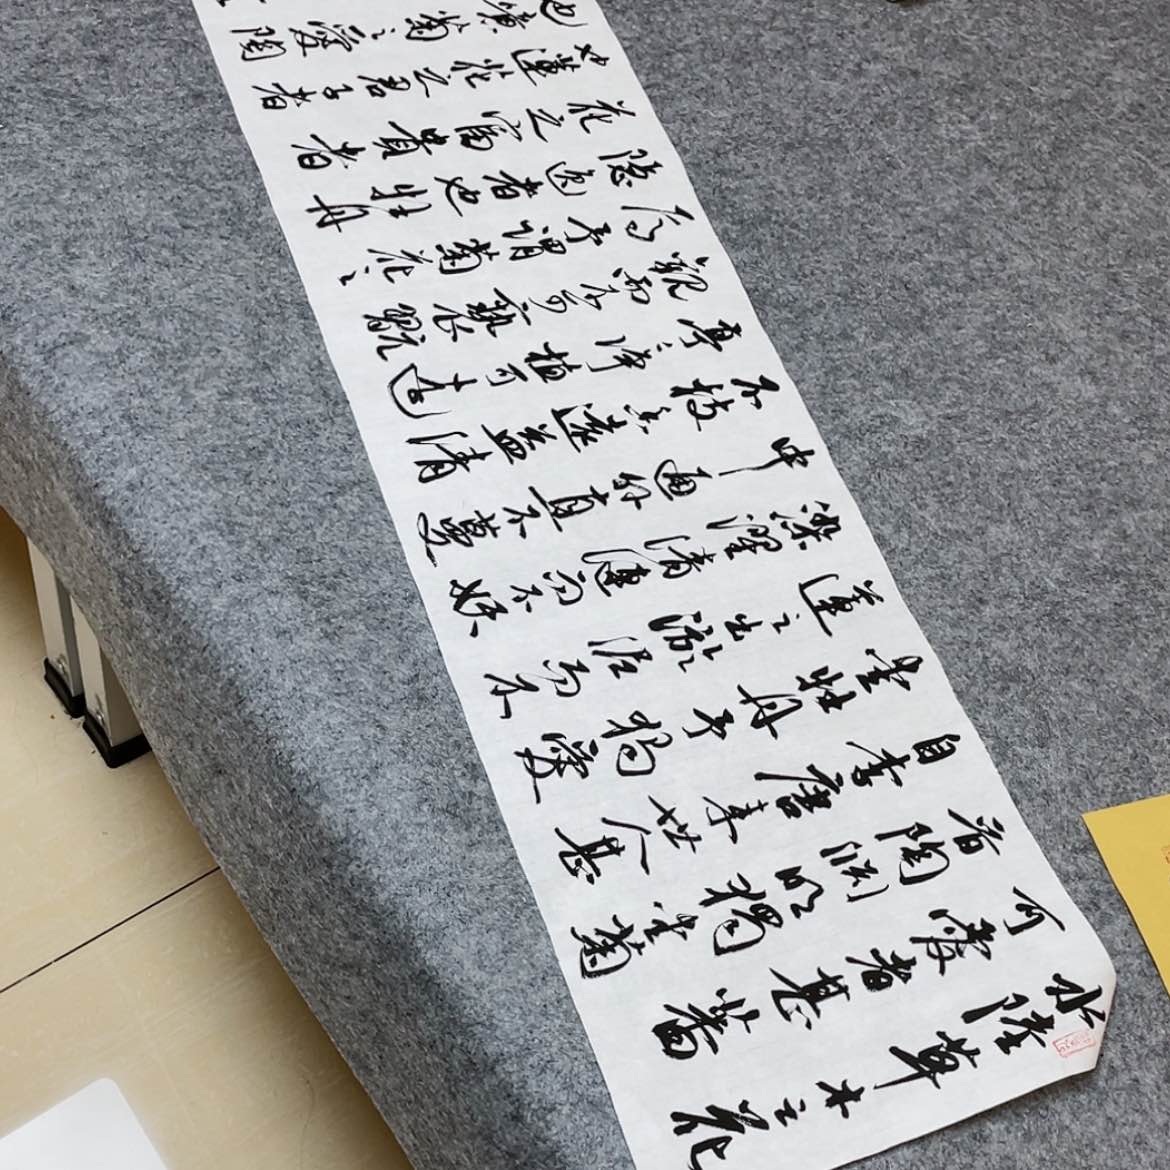 水陸草木之花
可愛者甚蕃
晋陶渊明獨爱菊
自李唐来世人甚
爱牡丹予獨愛
蓮之出淤泥而不
染濯清漣而不妖
中通外直不蔓
不枝香遠益清
亭々净植可遠
觀而不可褻翫
焉予謂菊花之
隱逸者也牡丹
花之富貴者
也蓮花之君子者
也噫菊之愛陶